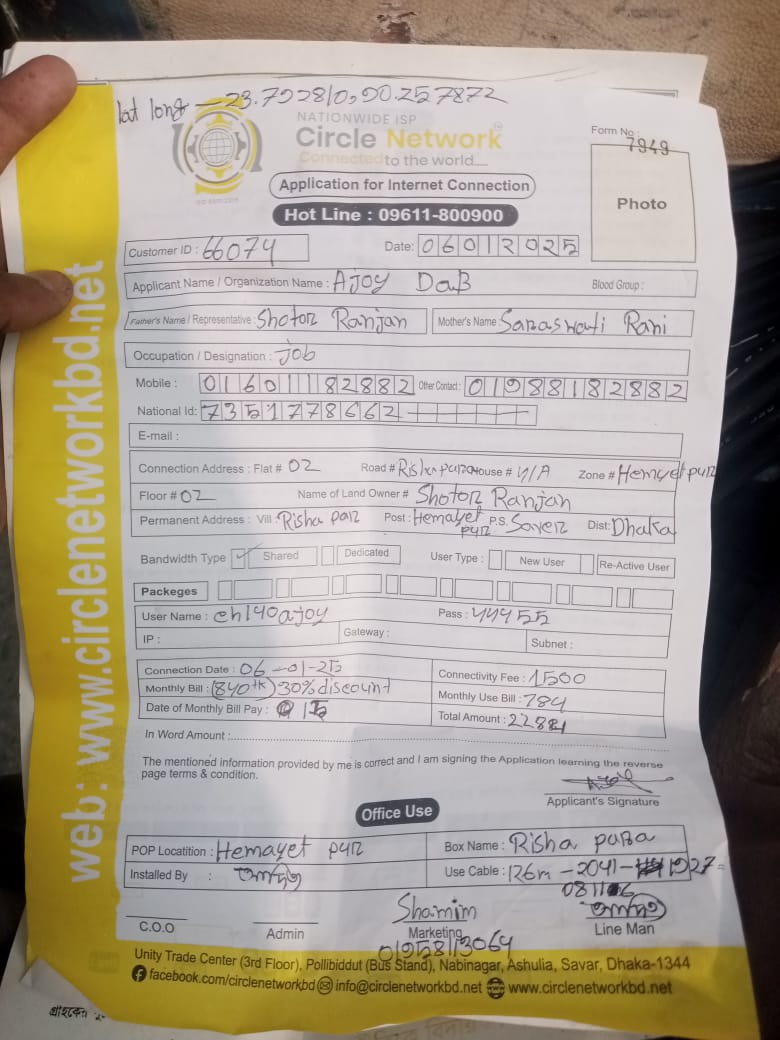 lat long – 23.792810,90.257872
NATIONWIDE ISP
Circle Network
Connected to the world....
Form No : 7949
Photo
Application for Internet Connection
Hot Line : 09611-800900
Customer ID : 66074 Date: 06012025
Applicant Name / Organization Name : AJOY Daß Blood Group :
Father's Name / Representative : Shotoz Ranjan Mother's Name : Saraswati Rani
Occupation / Designation : Job
Mobile : 01601182882 Other Contact : 01988182882
National Id: 7351778662
E-mail :
Connection Address : Flat # 02 Road # Risha para House # 4/A Zone # Hemyet puz
Floor # 02 Name of Land Owner # Shotoz Ranjan
Permanent Address : Vill : Risha paz Post : Hemayet puz P.S. Saver Dist: Dhaka
Bandwidth Type ✓ Shared Dedicated User Type : New User Re-Active User
Packeges
User Name : ch140ajoy Pass : 444455
IP : Gateway : Subnet :
Connection Date : 06-01-25 Connectivity Fee : 1500
Monthly Bill : (840 tk) 30% discount Monthly Use Bill : 784
Date of Monthly Bill Pay : 15 Total Amount : 2284
In Word Amount :
The mentioned information provided by me is correct and I am signing the Application learning the reverse
page terms & condition.
Applicant's Signature
Office Use
POP Locatition : Hemayet puz Box Name : Risha para
Installed By : Use Cable : 126m – 2041 – 1927=
C.O.O
Admin
Shamim
Marketing
01958113064
Line Man
Unity Trade Center (3rd Floor), Pollibiddut (Bus Stand), Nabinagar, Ashulia, Savar, Dhaka-1344
facebook.com/circlenetworkbd info@circlenetworkbd.net www.circlenetworkbd.net
web: www.circlenetworkbd.net
গ্রাহকের